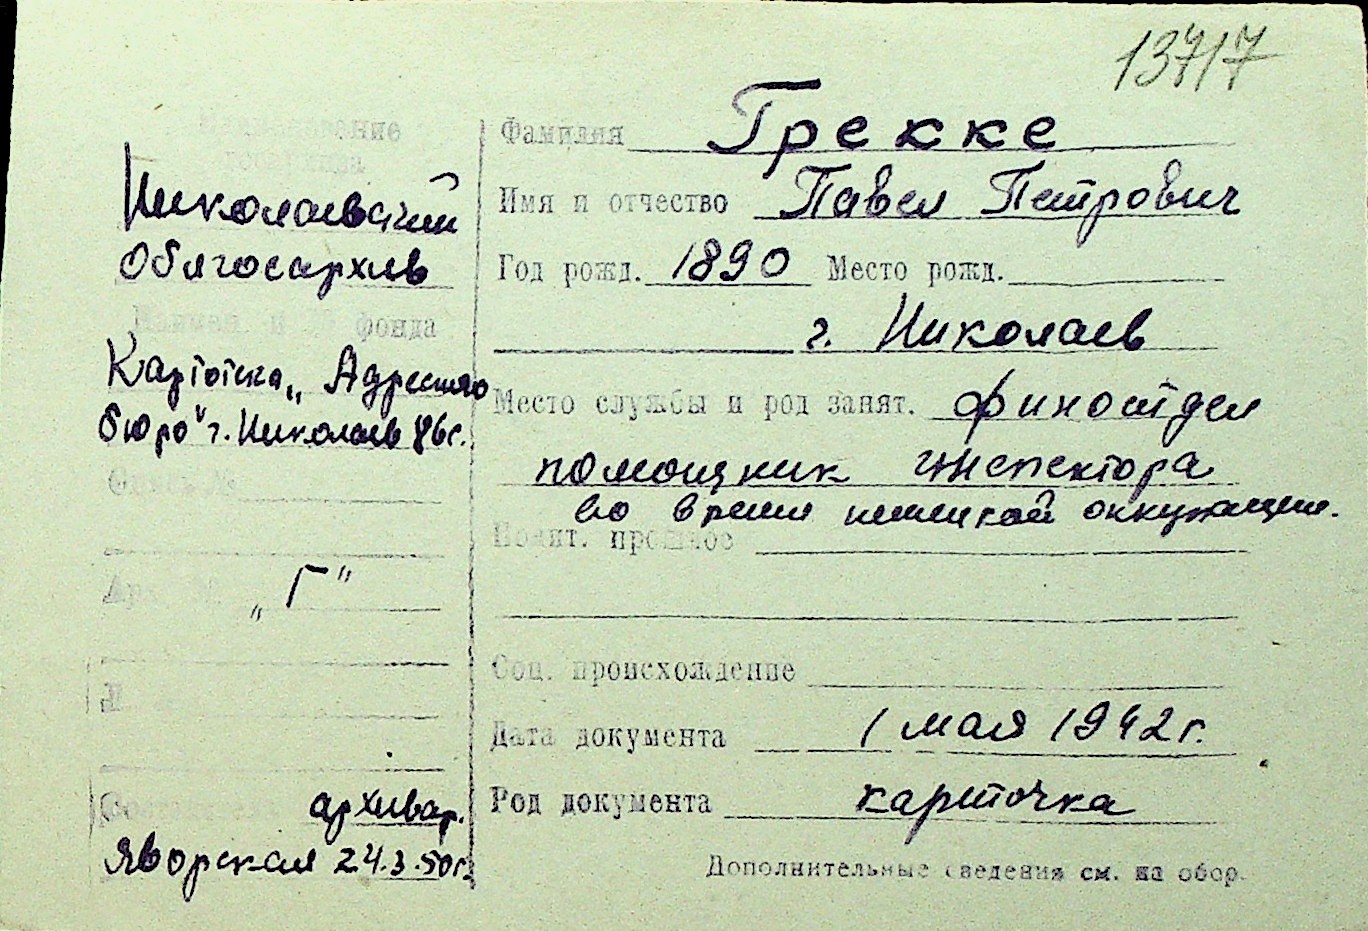 13717
Наименование
госархива
Николаевский
Облгосархив
Наимен. и № фонда
Картотека „Адресного
бюро" г. Николаев
Опись №
Арх. №
„Г"
Л
Составитель архивар.
Яворская 24.3.50г.
Фамилия Грекке
Имя и отчество Павел Петрович
Год рожд. 1890 Место рожд.
г. Николаев
Место службы и род занят. финотдел
помощник инспектора
во время немецкой оккупации.
Полит. прошлое
Соц. происхождение
Дата документа 1 мая 1942г.
Род документа карточка
Дополнительные сведения см. на обор.